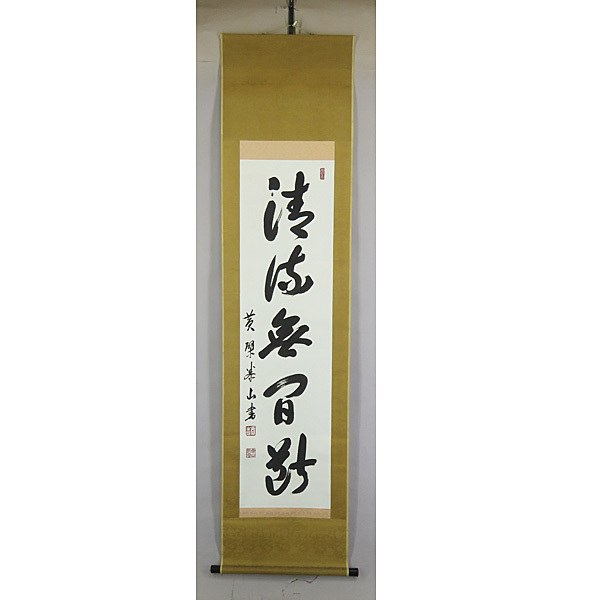 清流無間断
黄檗泰山書